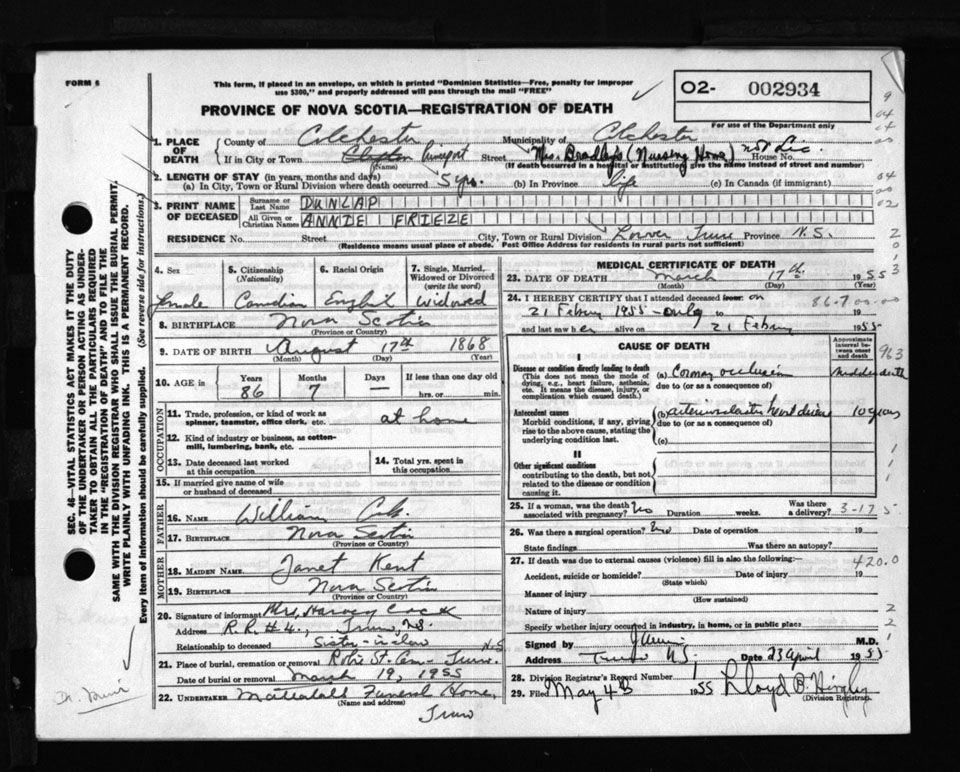 FORM 6
This form, if placed in an envelope, on which is printed "Dominion Statistics—Free, penalty for improper
use $300," and properly addressed will pass through the mail "FREE"
PROVINCE OF NOVA SCOTIA—REGISTRATION OF DEATH
O2- 002934
For use of the Department only
1. PLACE OF DEATH
County of Colchester Municipality of Colchester
If in City or Town Clifton Street Mrs. (Nursing Home) House No. not Lic.
(Name) (If death occurred in a hospital or institution give the name instead of street and number)
2. LENGTH OF STAY (in years, months and days)
(a) In City, Town or Rural Division where death occurred 5 yrs. (b) In Province life (c) In Canada (if immigrant)
3. PRINT NAME OF DECEASED
Surname or Last Name DUNLAP
All Given or Christian Names ANNIE FRIEZE
RESIDENCE No. Street City, Town or Rural Division Lower Truro Province N.S.
(Residence means usual place of abode. Post Office Address for residents in rural parts not sufficient)
4. Sex Female
5. Citizenship (Nationality) Canadian
6. Racial Origin English
7. Single, Married, Widowed or Divorced (write the word) Widowed
8. BIRTHPLACE Nova Scotia
(Province or Country)
9. DATE OF BIRTH August 17th 1868
(Month) (Day) (Year)
10. AGE in Years 86 Months 7 Days — If less than one day old hrs. or min.
OCCUPATION
11. Trade, profession, or kind of work as spinner, teamster, office clerk, etc. at home
12. Kind of industry or business, as cotton-mill, lumbering, bank, etc.
13. Date deceased last worked at this occupation
14. Total yrs. spent in this occupation
15. If married give name of wife or husband of deceased
FATHER
16. NAME William
17. BIRTHPLACE Nova Scotia
(Province or Country)
MOTHER
18. MAIDEN NAME Janet Kent
19. BIRTHPLACE Nova Scotia
(Province or Country)
20. Signature of informant Mrs. Harvey
Address R.R. #4, Truro, N.S.
Relationship to deceased Sister-in-law
21. Place of burial, cremation or removal Robie St. Cem. Truro. N.S.
Date of burial or removal March 19, 1955
22. UNDERTAKER Mattatall Funeral Home,
(Name and address)
Truro
MEDICAL CERTIFICATE OF DEATH
23. DATE OF DEATH March 17th 1955
(Month) (Day)
24. I HEREBY CERTIFY that I attended deceased from on
21 February 1955 - only to 19
and last saw her alive on 21 February 1955
86-7
CAUSE OF DEATH
Approximate interval between onset and death
I
Disease or condition directly leading to death
(This does not mean the mode of dying, e.g., heart failure, asthenia, etc. It means the disease, injury, or complication which caused death.)
(a) Coronary occlusion sudden death
due to (or as a consequence of)
Antecedent causes
Morbid conditions, if any, giving rise to the above cause, stating the underlying condition last.
(b) arteriosclerotic heart disease 10 years
due to (or as a consequence of)
(c)
II
Other significant conditions
contributing to the death, but not related to the disease or condition causing it.
25. If a woman, was the death associated with pregnancy? No Duration weeks. Was there a delivery? 3-17 5
26. Was there a surgical operation? No Date of operation 19
State findings Was there an autopsy?
27. If death was due to external causes (violence) fill in also the following:— 420.0
Accident, suicide or homicide? Date of injury 19
(State which)
Manner of injury
(How sustained)
Nature of injury
Specify whether injury occurred in industry, in home, or in public place
Signed by M.D.
Address Truro NS Date 23 April 1955
28. Division Registrar's Record Number
29. Filed May 4th 1955 Lloyd B.
(Division Registrar)
SEC. 46—VITAL STATISTICS ACT MAKES IT THE DUTY
OF THE UNDERTAKER OR PERSON ACTING AS UNDER-
TAKER TO OBTAIN ALL THE PARTICULARS REQUIRED
IN THE "REGISTRATION OF DEATH" AND TO FILE THE
SAME WITH THE DIVISION REGISTRAR WHO SHALL ISSUE THE BURIAL PERMIT.
WRITE PLAINLY WITH UNFADING INK. THIS IS A PERMANENT RECORD.
Every item of information should be carefully supplied. (See reverse side for instructions.)